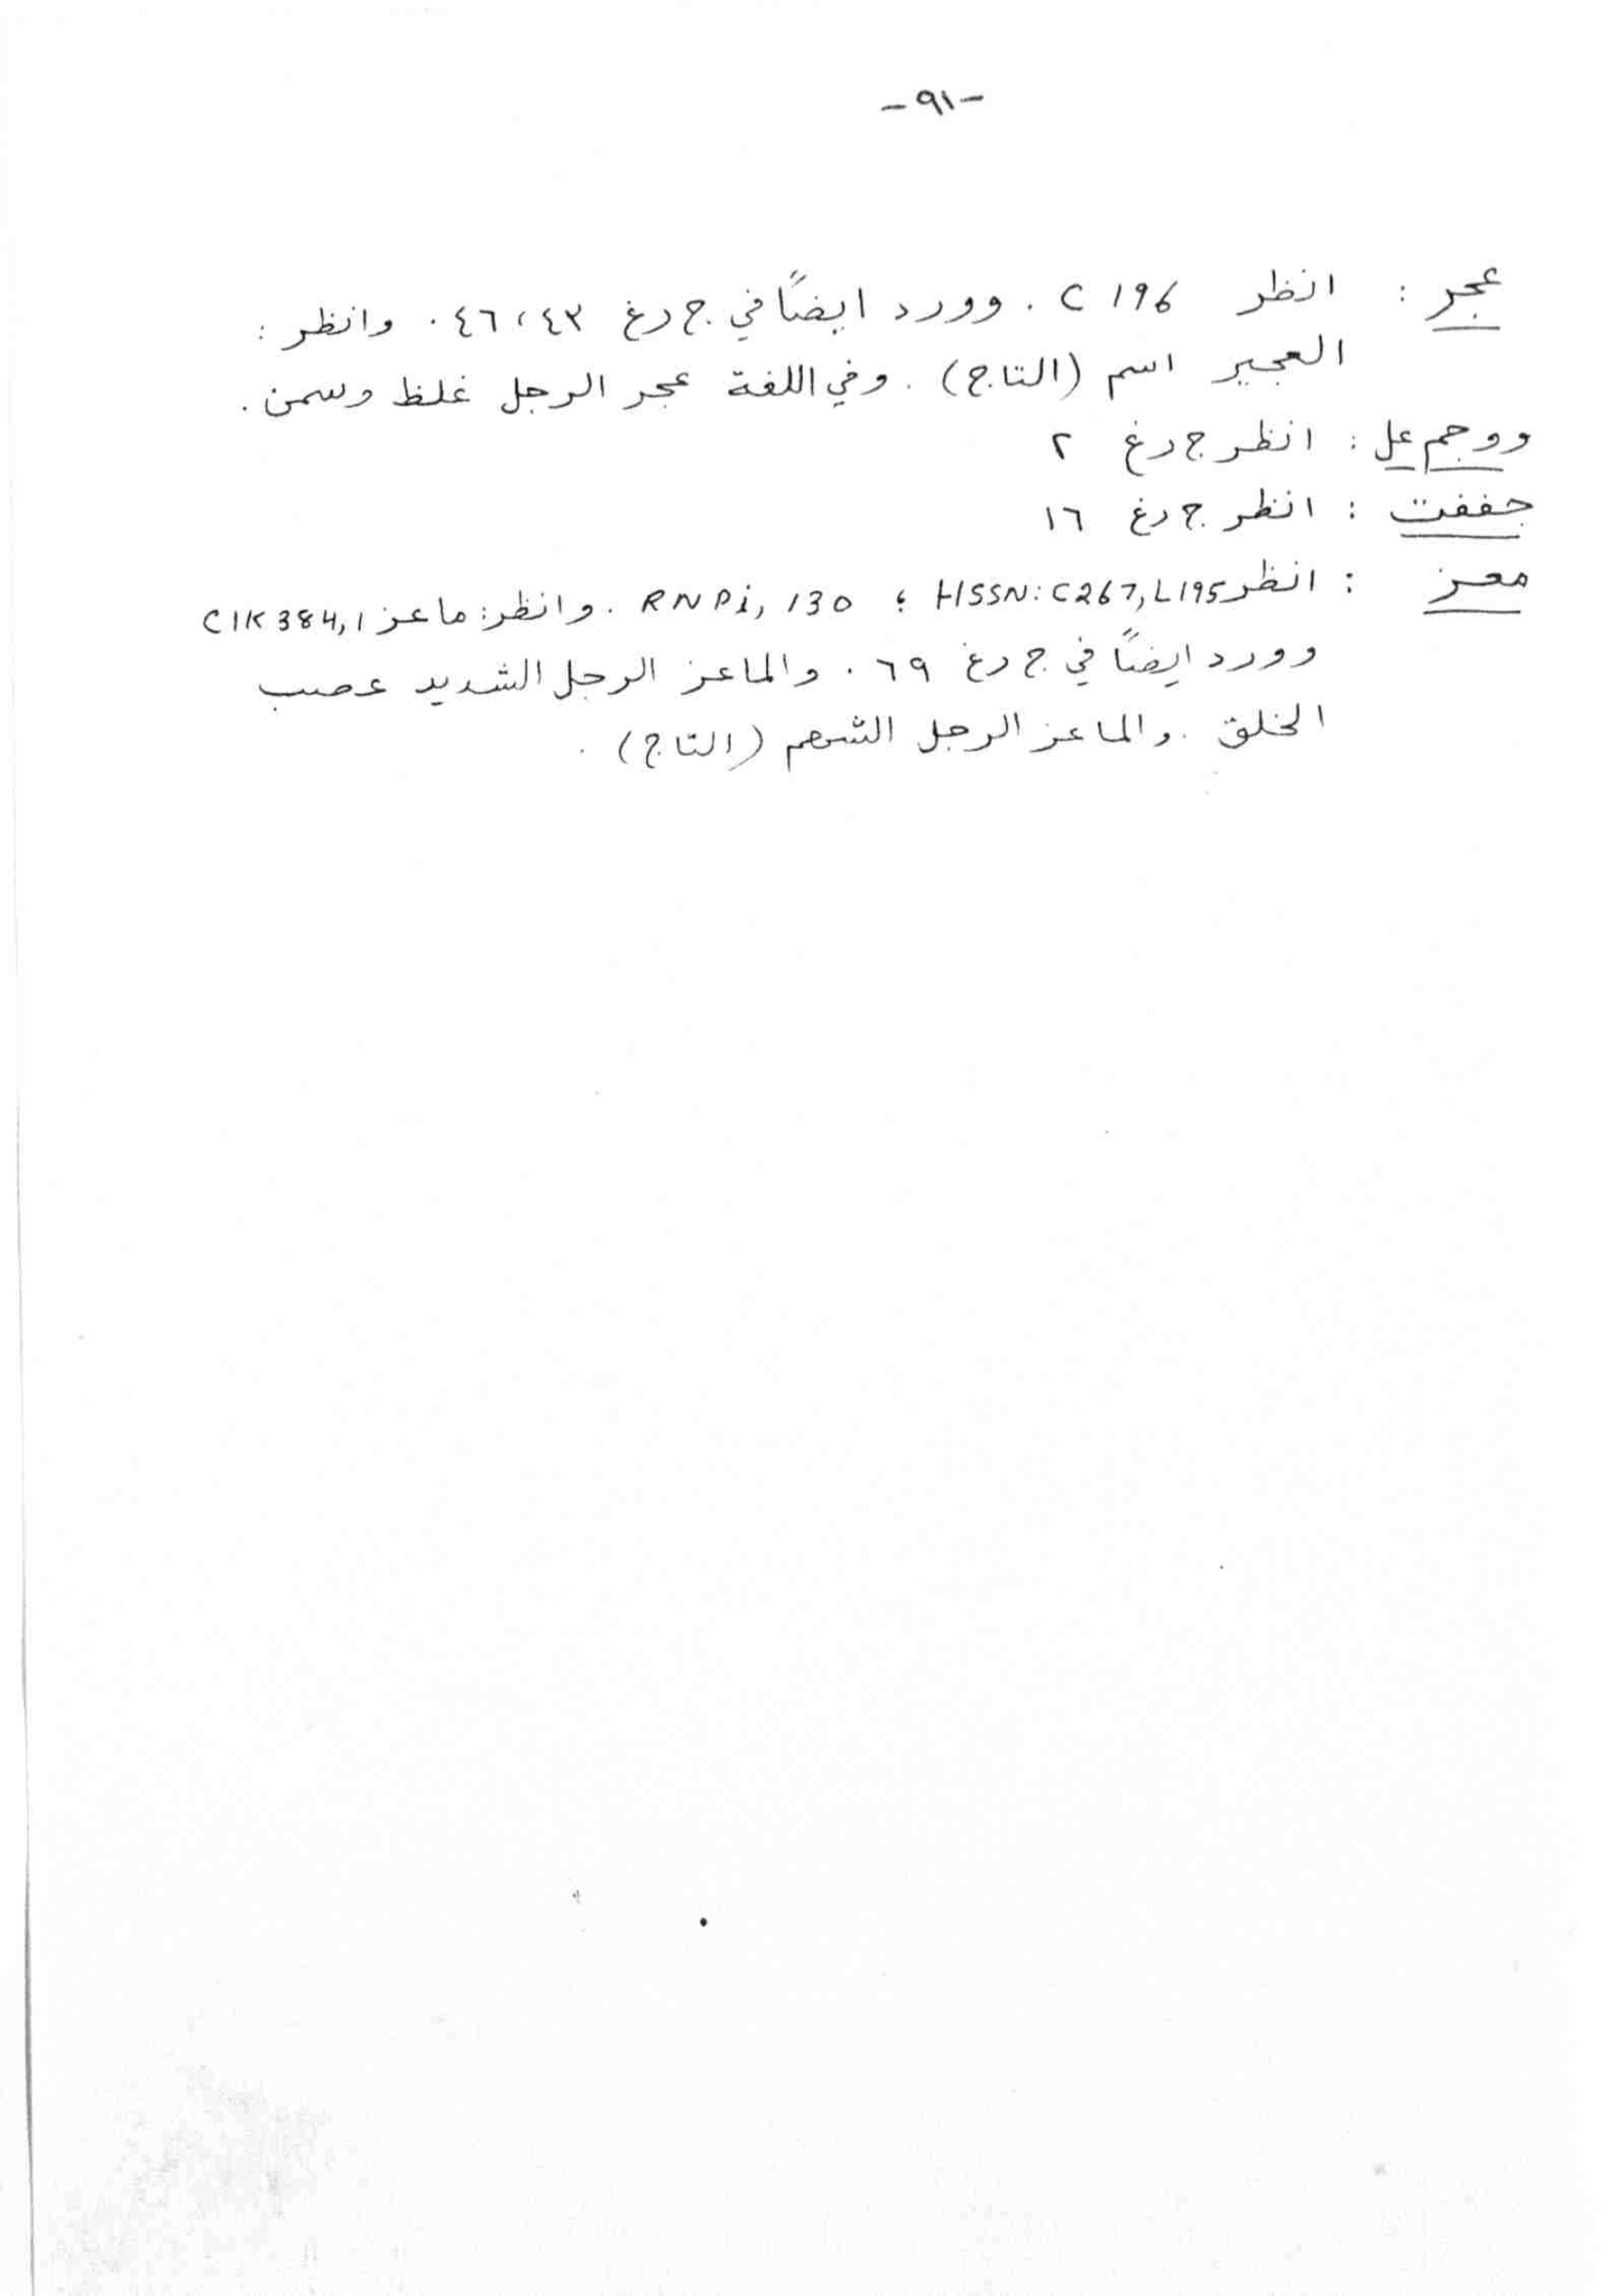 -٩١-
عجر : انظر C 196 . وورد ايضاً في ج رغ ٤٣ ، ٤٦ . وانظر :
العجير اسم (التاج) . وفي اللغة عجر الرجل غلظ وسمن .
ووجم عل : انظر ج رغ ٢
جففت : انظر ج رغ ١٦
معز : انظر HSSN: C267, L195 ؛ RNPi, 130 . وانظر : ماعز CIK 384,1
وورد ايضاً في ج رغ ٦٩ . والماعز الرجل الشديد عصب
الخلق . والماعز الرجل الشهم (التاج) .